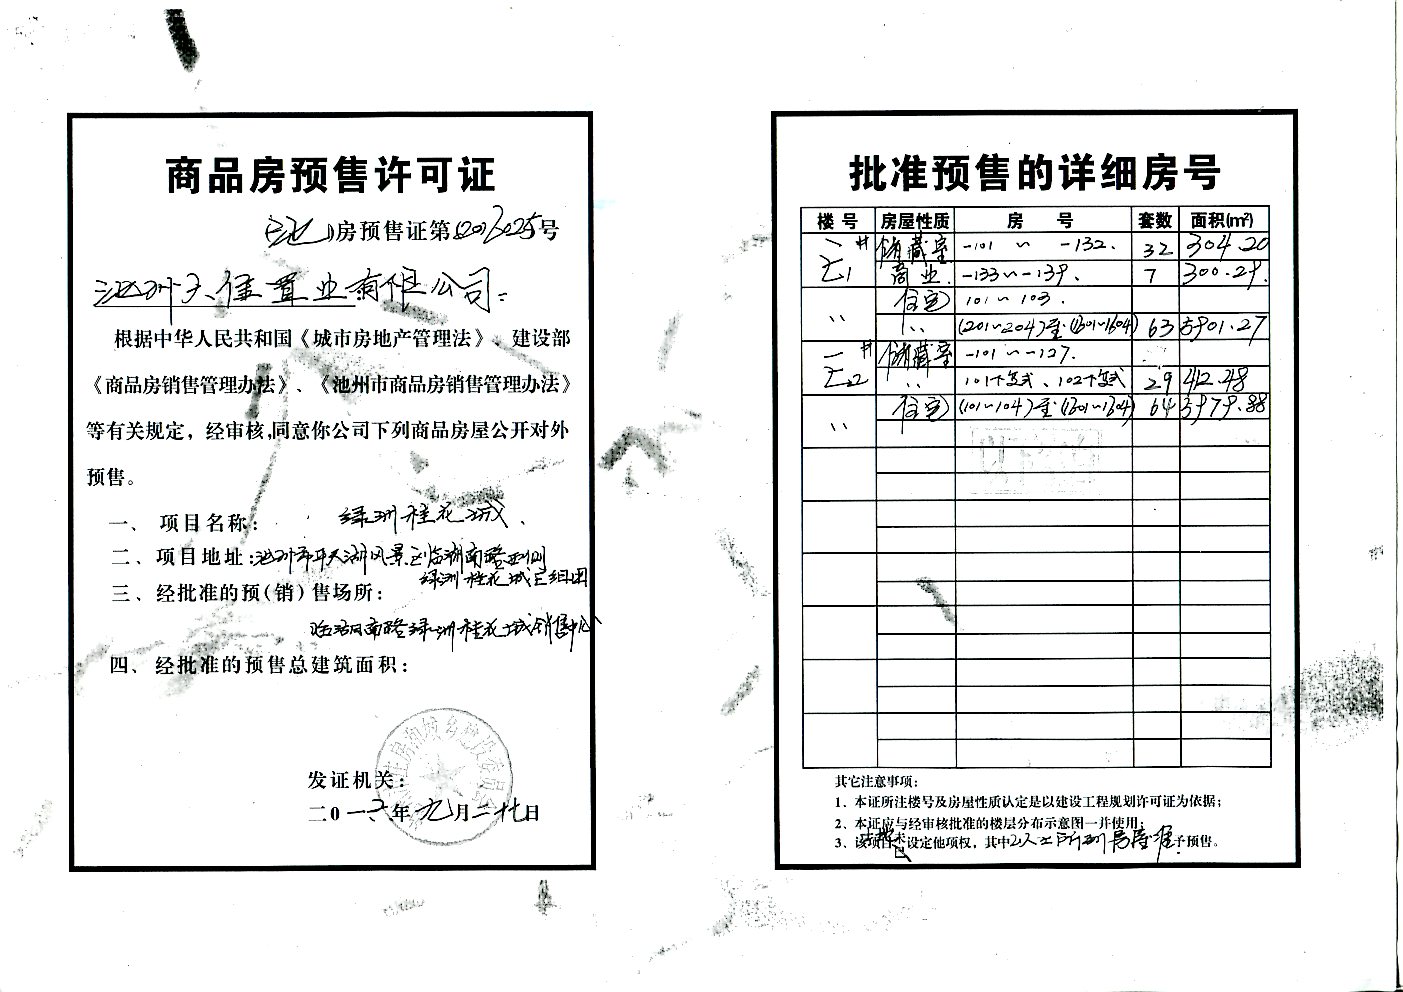 商品房预售许可证
(池)房预售证第(2016025)号
池州天佳置业有限公司:
根据中华人民共和国《城市房地产管理法》、建设部
《商品房销售管理办法》、《池州市商品房销售管理办法》
等有关规定，经审核，同意你公司下列商品房屋公开对外
预售。
一、项目名称: 绿洲桂花城、
二、项目地址:池州市平天湖风景区临湖南路西侧
绿洲桂花城E组团
三、经批准的预(销)售场所:
临湖南路绿洲桂花城销售中心
四、经批准的预售总建筑面积:
发证机关:
二0一六年九月二十七日
批准预售的详细房号
楼号 房屋性质 房号 套数 面积(m²)
E1# 储藏室 -101 ~ -132. 32 304.20
商业 -133~-139. 7 300.29.
〃 住宅 101~103.
〃 (201~204)至(1601~1604) 63 5901.27
E2# 储藏室 -101~-127.
〃 101下复式、102下复式 29 412.48
〃 住宅 (101~104)至(1601~1604) 64 5979.88
以下空白
其它注意事项:
1、本证所注楼号及房屋性质认定是以建设工程规划许可证为依据;
2、本证应与经审核批准的楼层分布示意图一并使用;
3、该项目 设定他项权，其中以上所列房屋准予预售。